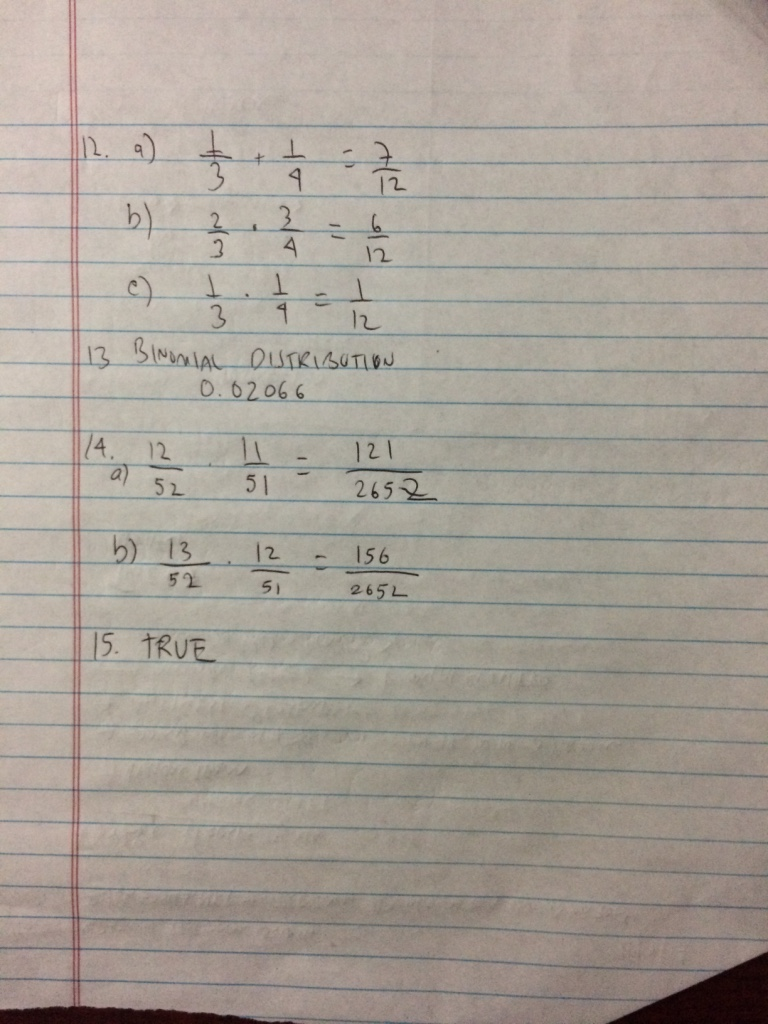 12. a) 1/3 + 1/4 = 7/12
b) 2/3 · 3/4 = 6/12
c) 1/3 · 1/4 = 1/12
13 BINOMIAL DISTRIBUTION
0.02066
14.
a) 12/52 · 11/51 = 121/2652
b) 13/52 · 12/51 = 156/2652
15. TRUE